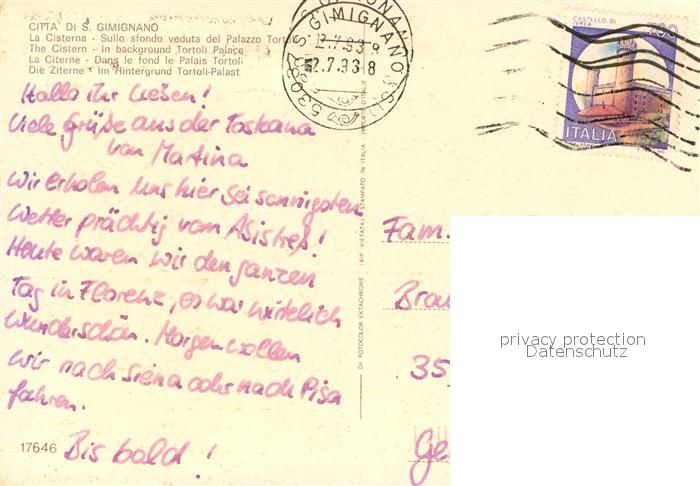 CITTA' DI S. GIMIGNANO
La Cisterna - Sullo sfondo veduta del Palazzo Torto
The Cistern - In background Tortoli Palace
La Citerne - Dans le fond le Palais Tortoli
Die Ziterne - Im Hintergrund Tortoli-Palast
Hallo ihr Lieben!
Viele Grüße aus der Toskana
von Martina
Wir erholen uns hier bei sonnigstem
Wetter prächtig vom
Heute waren wir den ganzen
Tag in Florenz, es war wirklich
wunderschön. Morgen wollen
wir nach Siena oder nach Pisa
fahren.
Bis bald!
17646
S. GIMIGNANO
53037
12.7.93-8
DA FOTOCOLOR EKTACHROME (RIP. VIETATA) STAMPATO IN ITALIA
CASTELLO DI
IVREA
ITALIA
Fam.
Brau
35
Ge
privacy protection
Datenschutz